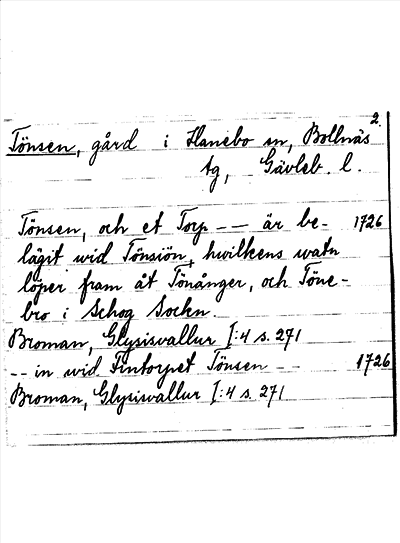 2.
Tönsen, gård i Hanebo sn, Bollnäs
tg, Gävleb. l.
Tönsen, och et Torp -- -- är be- 1726
lägit wid Tönsiön, hwilkens watn
löper fram åt Tönånger, och Töne-
bro i Schog Sockn.
Broman, Glysisvallur I:4 s. 271
-- in wid Fintorpet Tönsen -- 1726
Broman, Glysisvallur I:4 s. 271